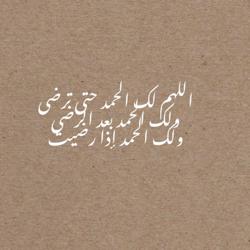 اللهم لك الحمد حتى ترضى
ولك الحمد بعد الرضى
ولك الحمد إذا رضيت